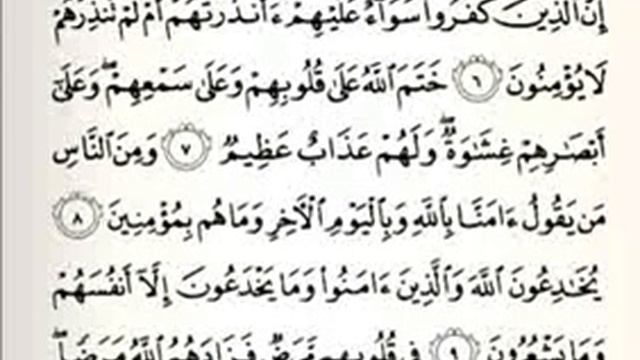 إِنَّ ٱلَّذِينَ كَفَرُوا۟ سَوَآءٌ عَلَيْهِمْ ءَأَنذَرْتَهُمْ أَمْ لَمْ تُنذِرْهُمْ
لَا يُؤْمِنُونَ ٦ خَتَمَ ٱللَّهُ عَلَىٰ قُلُوبِهِمْ وَعَلَىٰ سَمْعِهِمْ ۖ وَعَلَىٰٓ
أَبْصَـٰرِهِمْ غِشَـٰوَةٌ ۖ وَلَهُمْ عَذَابٌ عَظِيمٌ ٧ وَمِنَ ٱلنَّاسِ
مَن يَقُولُ ءَامَنَّا بِٱللَّهِ وَبِٱلْيَوْمِ ٱلْـَٔاخِرِ وَمَا هُم بِمُؤْمِنِينَ ٨
يُخَـٰدِعُونَ ٱللَّهَ وَٱلَّذِينَ ءَامَنُوا۟ وَمَا يَخْدَعُونَ إِلَّآ أَنفُسَهُمْ
وَمَا يَشْعُرُونَ ٩ فِى قُلُوبِهِم مَّرَضٌ فَزَادَهُمُ ٱللَّهُ مَرَضًا ۖ